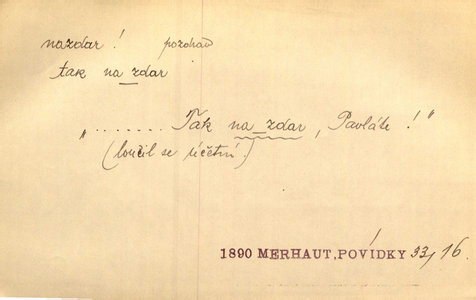 nazdar! pozdrav
tak na_zdar
„....... Tak na_zdar, Pavláte!"
(loučil se účetní.)
1890 MERHAUT, POVÍDKY 33/16.